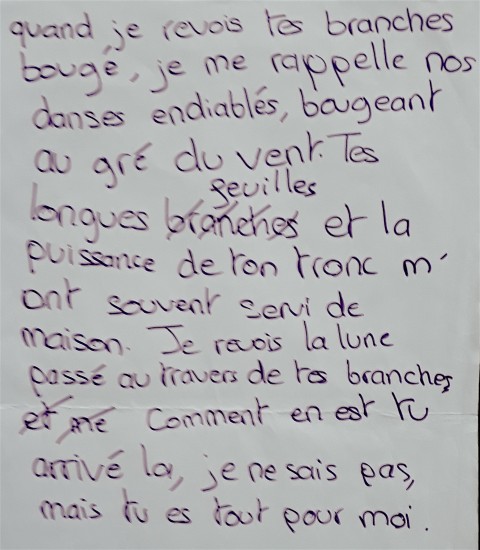 quand je revois tes branches
bougé, je me rappelle nos
danses endiablés, bougeant
au gré du vent. Tes
feuilles
longues branches et la
puissance de ton tronc m'
ont souvent servi de
maison. Je revois la lune
passé au travers de tes branches
et me Comment en est tu
arrivé la, je ne sais pas,
mais tu es tout pour moi.